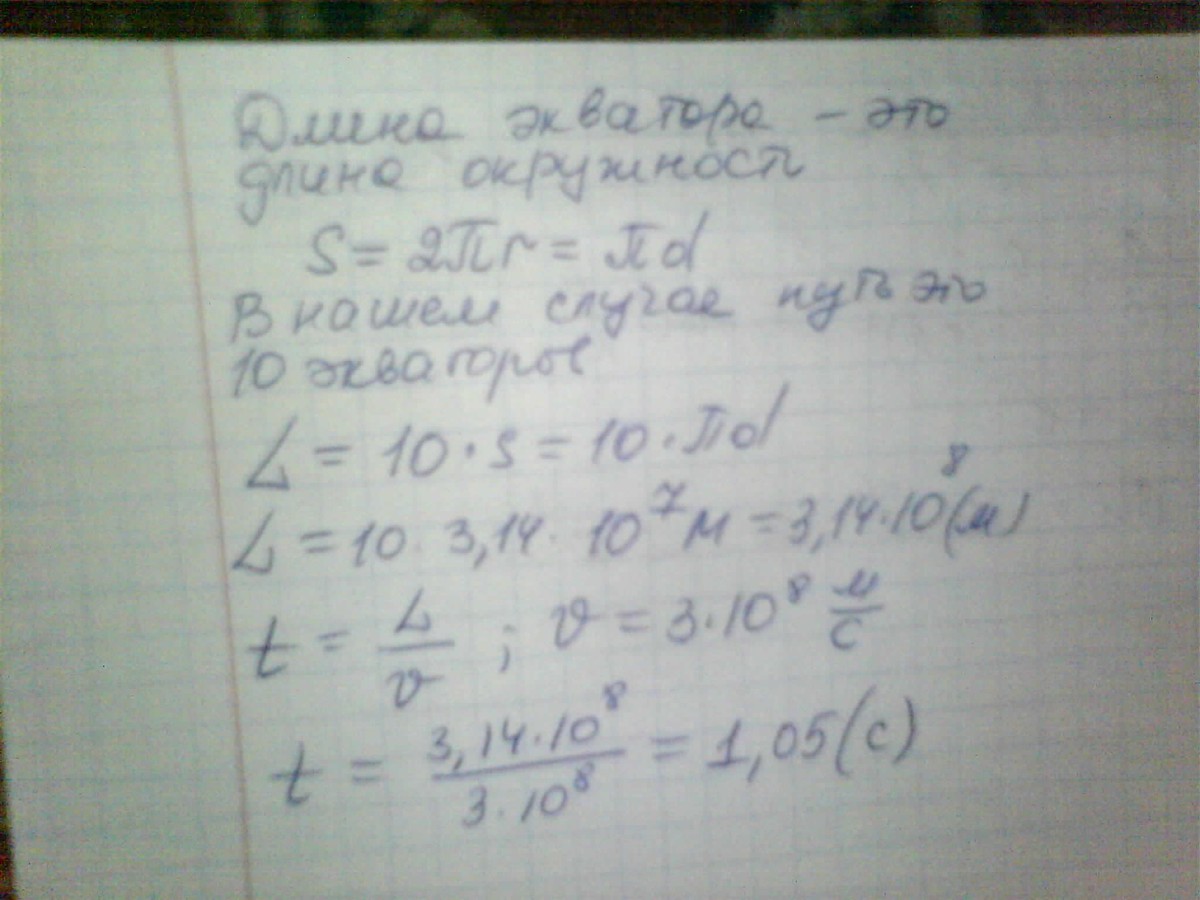 Длина экватора – это
длина окружности
S = 2πr = πd
В нашем случае путь это
10 экваторов
L = 10 · s = 10 · πd
L = 10 · 3,14 · 10⁷ м = 3,14 · 10⁸ (м)
t = L/v ; v = 3 · 10⁸ м/с
t = 3,14 · 10⁸ / 3 · 10⁸ = 1,05 (с)